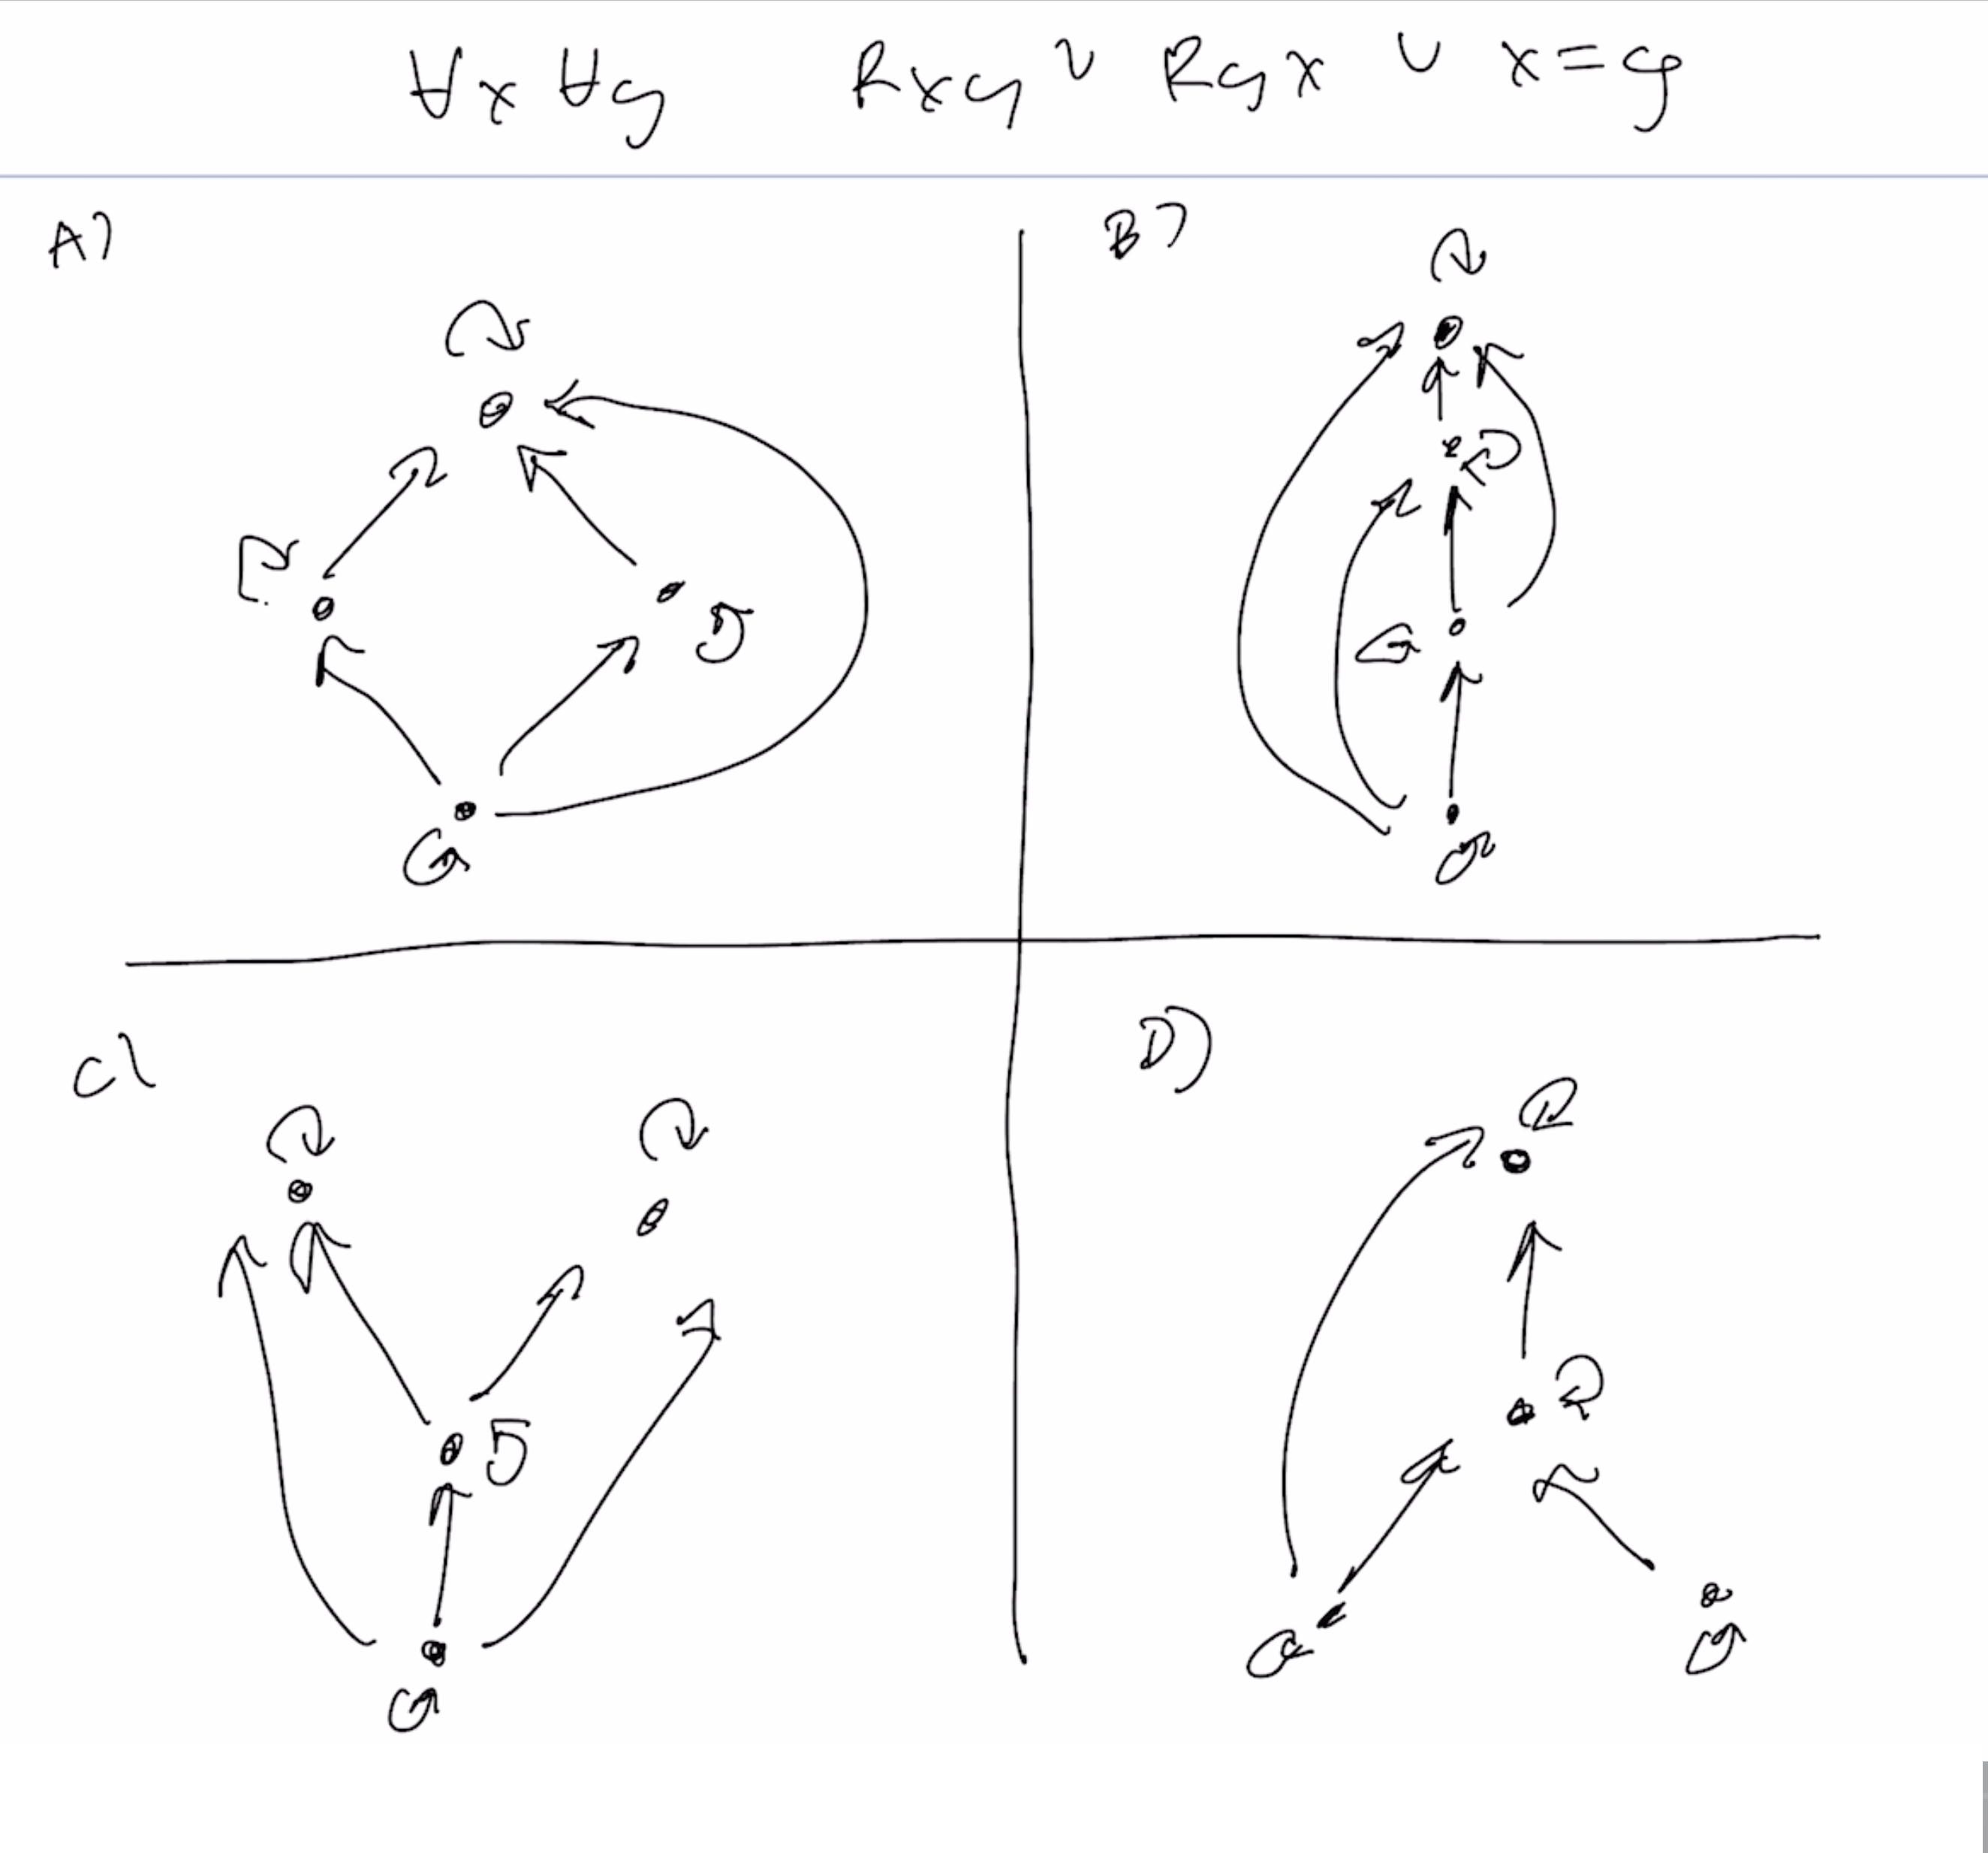 ∀x ∀y Rxy ∨ Ryx ∨ x=y
A)
B)
C)
D)